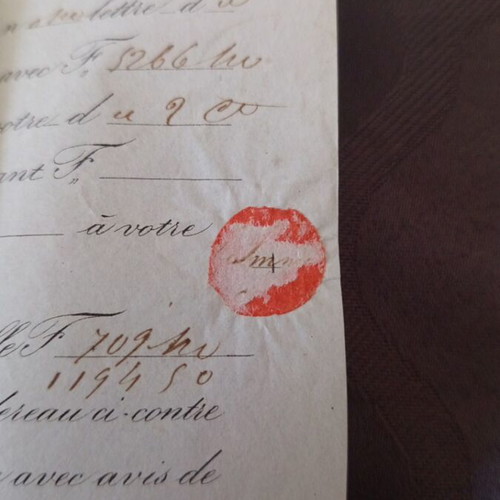 lettre d
avec F. 5266
votre d 2 Ct
ant F.
à votre
F 709
1194 50
ereau ci-contre
avec avis de